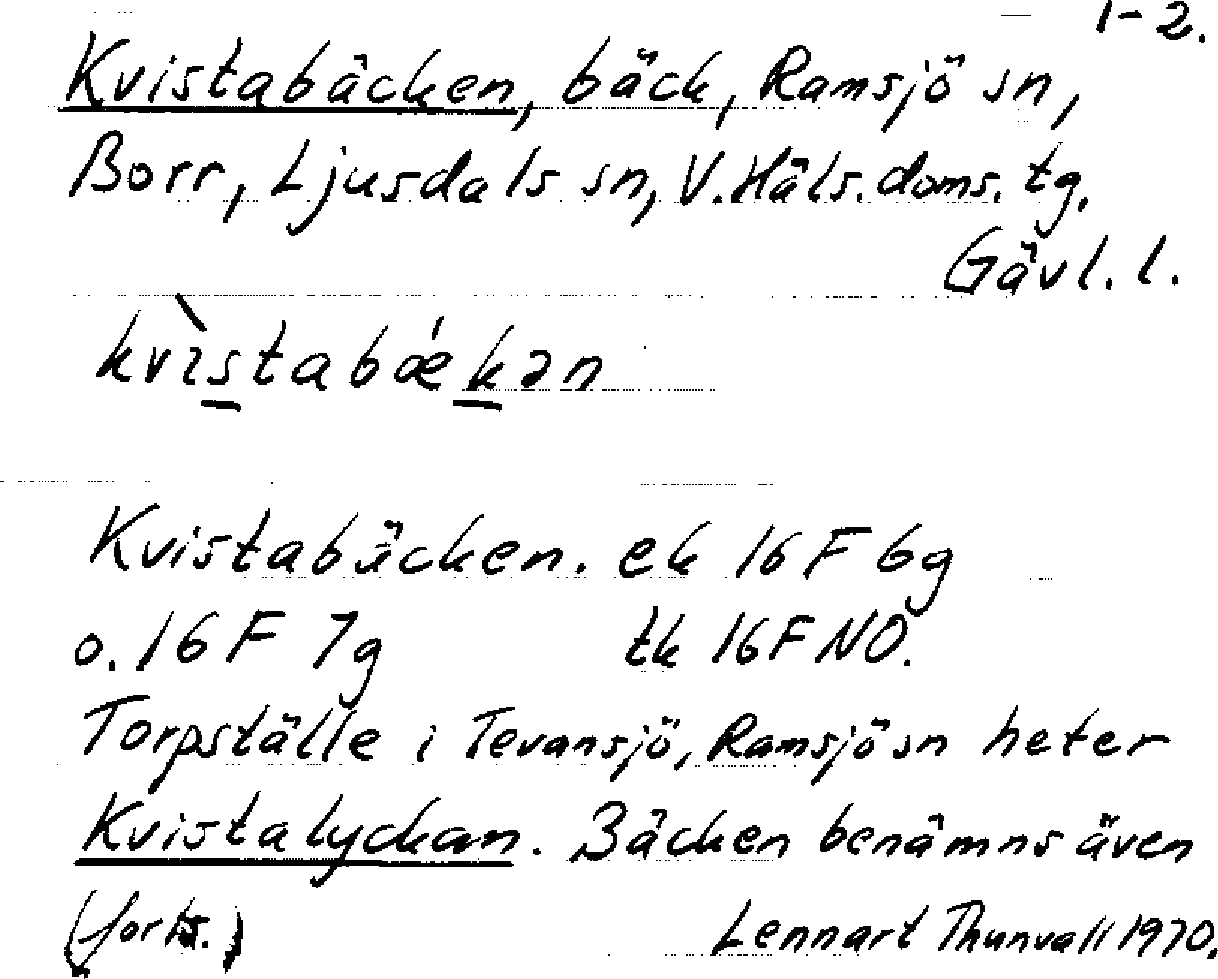 1-2.
Kvistabäcken, bäck, Ramsjö sn,
Borr, Ljusdals sn, V. Häls. doms. tg.
Gävl. l.
kvìstabǽkən
Kvistabäcken. ek 16 F 6g
o. 16 F 7g tk 16 F NO.
Torpställe i Tevansjö, Ramsjö sn heter
Kvistalyckan. Bäcken benämns även
(forts.) Lennart Thunvall 1970.